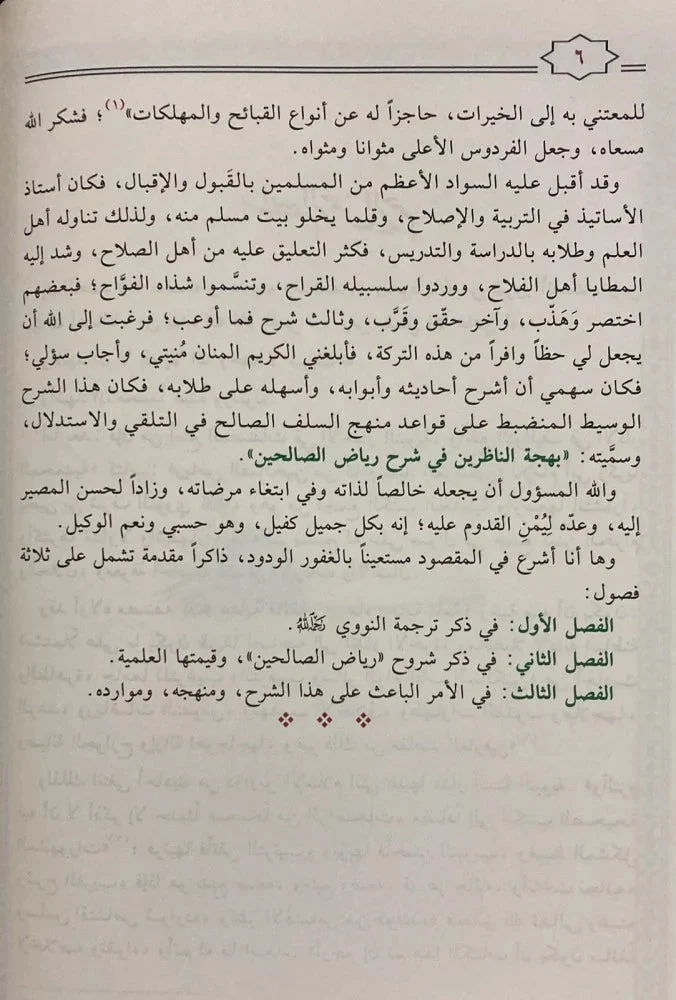 ٦
للمعتني به إلى الخيرات، حاجزاً له عن أنواع القبائح والمهلكات»(١)؛ فشكر الله
مسعاه، وجعل الفردوس الأعلى مثوانا ومثواه.
وقد أقبل عليه السواد الأعظم من المسلمين بالقَبول والإقبال، فكان أستاذ
الأساتيذ في التربية والإصلاح، وقلما يخلو بيت مسلم منه، ولذلك تناوله أهل
العلم وطلابه بالدراسة والتدريس، فكثر التعليق عليه من أهل الصلاح، وشد إليه
المطايا أهل الفلاح، ووردوا سلسبيله القراح، وتنسَّموا شذاه الفوَّاح؛ فبعضهم
اختصر وَهَذّب، وآخر حقّق وقَرَّب، وثالث شرح فما أوعب؛ فرغبت إلى الله أن
يجعل لي حظاً وافراً من هذه التركة، فأبلغني الكريم المنان مُنيتي، وأجاب سؤلي؛
فكان سهمي أن أشرح أحاديثه وأبوابه، وأسهله على طلابه، فكان هذا الشرح
الوسيط المنضبط على قواعد منهج السلف الصالح في التلقي والاستدلال،
وسمَّيته: «بهجة الناظرين في شرح رياض الصالحين».
والله المسؤول أن يجعله خالصاً لذاته وفي ابتغاء مرضاته، وزاداً لحسن المصير
إليه، وعدّه لِيُمْنِ القدوم عليه؛ إنه بكل جميل كفيل، وهو حسبي ونعم الوكيل.
وها أنا أشرع في المقصود مستعيناً بالغفور الودود، ذاكراً مقدمة تشمل على ثلاثة
فصول:
الفصل الأول: في ذكر ترجمة النووي رَحِمَهُ اللهُ.
الفصل الثاني: في ذكر شروح «رياض الصالحين»، وقيمتها العلمية.
الفصل الثالث: في الأمر الباعث على هذا الشرح، ومنهجه، وموارده.